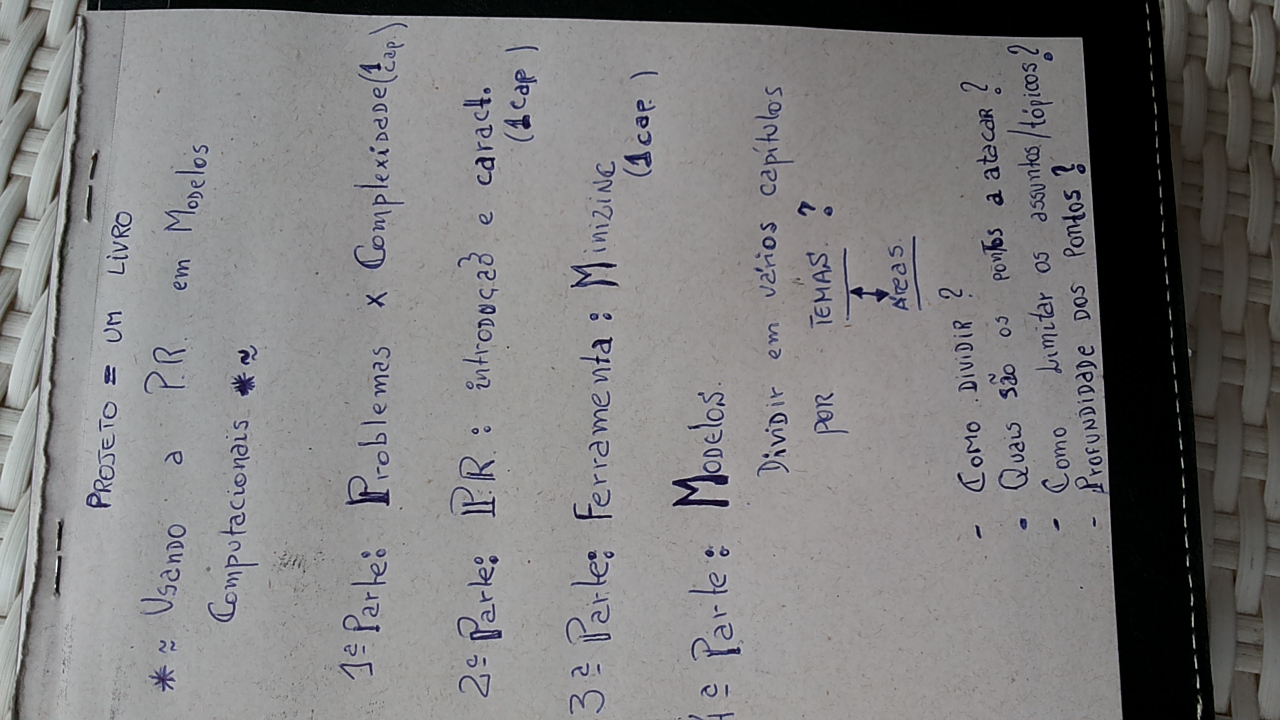 PROJETO = UM LIVRO
*≈ Usando a P.R. em Modelos
Computacionais *≈
1ª Parte: Problemas x Complexidade (1 cap.)
2ª Parte: P.R.: introdução e caract.
(1 cap)
3ª Parte: Ferramenta: Minizinc
(1 cap.)
4ª Parte: Modelos.
Dividir em vários capítulos
POR TEMAS. ?
Áreas.
- Como DIVIDIR ?
• Quais são os pontos a atacar ?
- Como Limitar os assuntos/tópicos ?
- PROFUNDIDADE DOS PONTOS ?